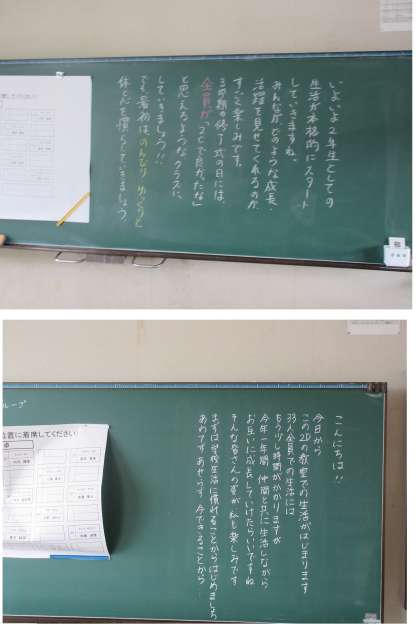 いよいよ2年生としての
生活が本格的にスタート
していきますね。
みんながどのような成長・
活躍を見せてくれるのか、
すごく楽しみです。
3学期の修了式の日には、
全員が「2Cで良かったな」
と思えるようなクラスに
していきましょう!!
でも最初はのんびりゆっくりと
体と心を慣らしていきましょう!
こんにちは!!
今日から
この2Dの教室での生活がはじまります
33人全員での生活には
もう少し時間がかかりますが
今年一年間 仲間と共に生活しながら
お互いに成長していけたらいいですね
そんな皆さんの姿が私も楽しみです
まずは学校生活に慣れることからはじめましょう
あわてず あせらず 今できることから…
ループ
位置に着席してください
卓